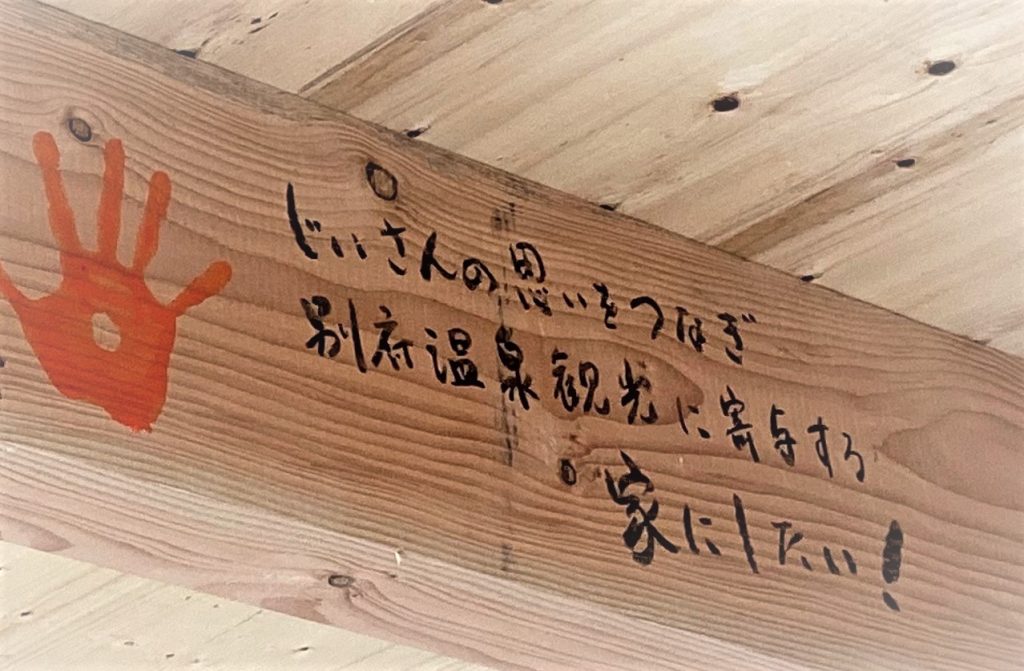 じいさんの思いをつなぎ
別府温泉観光に寄与する
家にしたい!